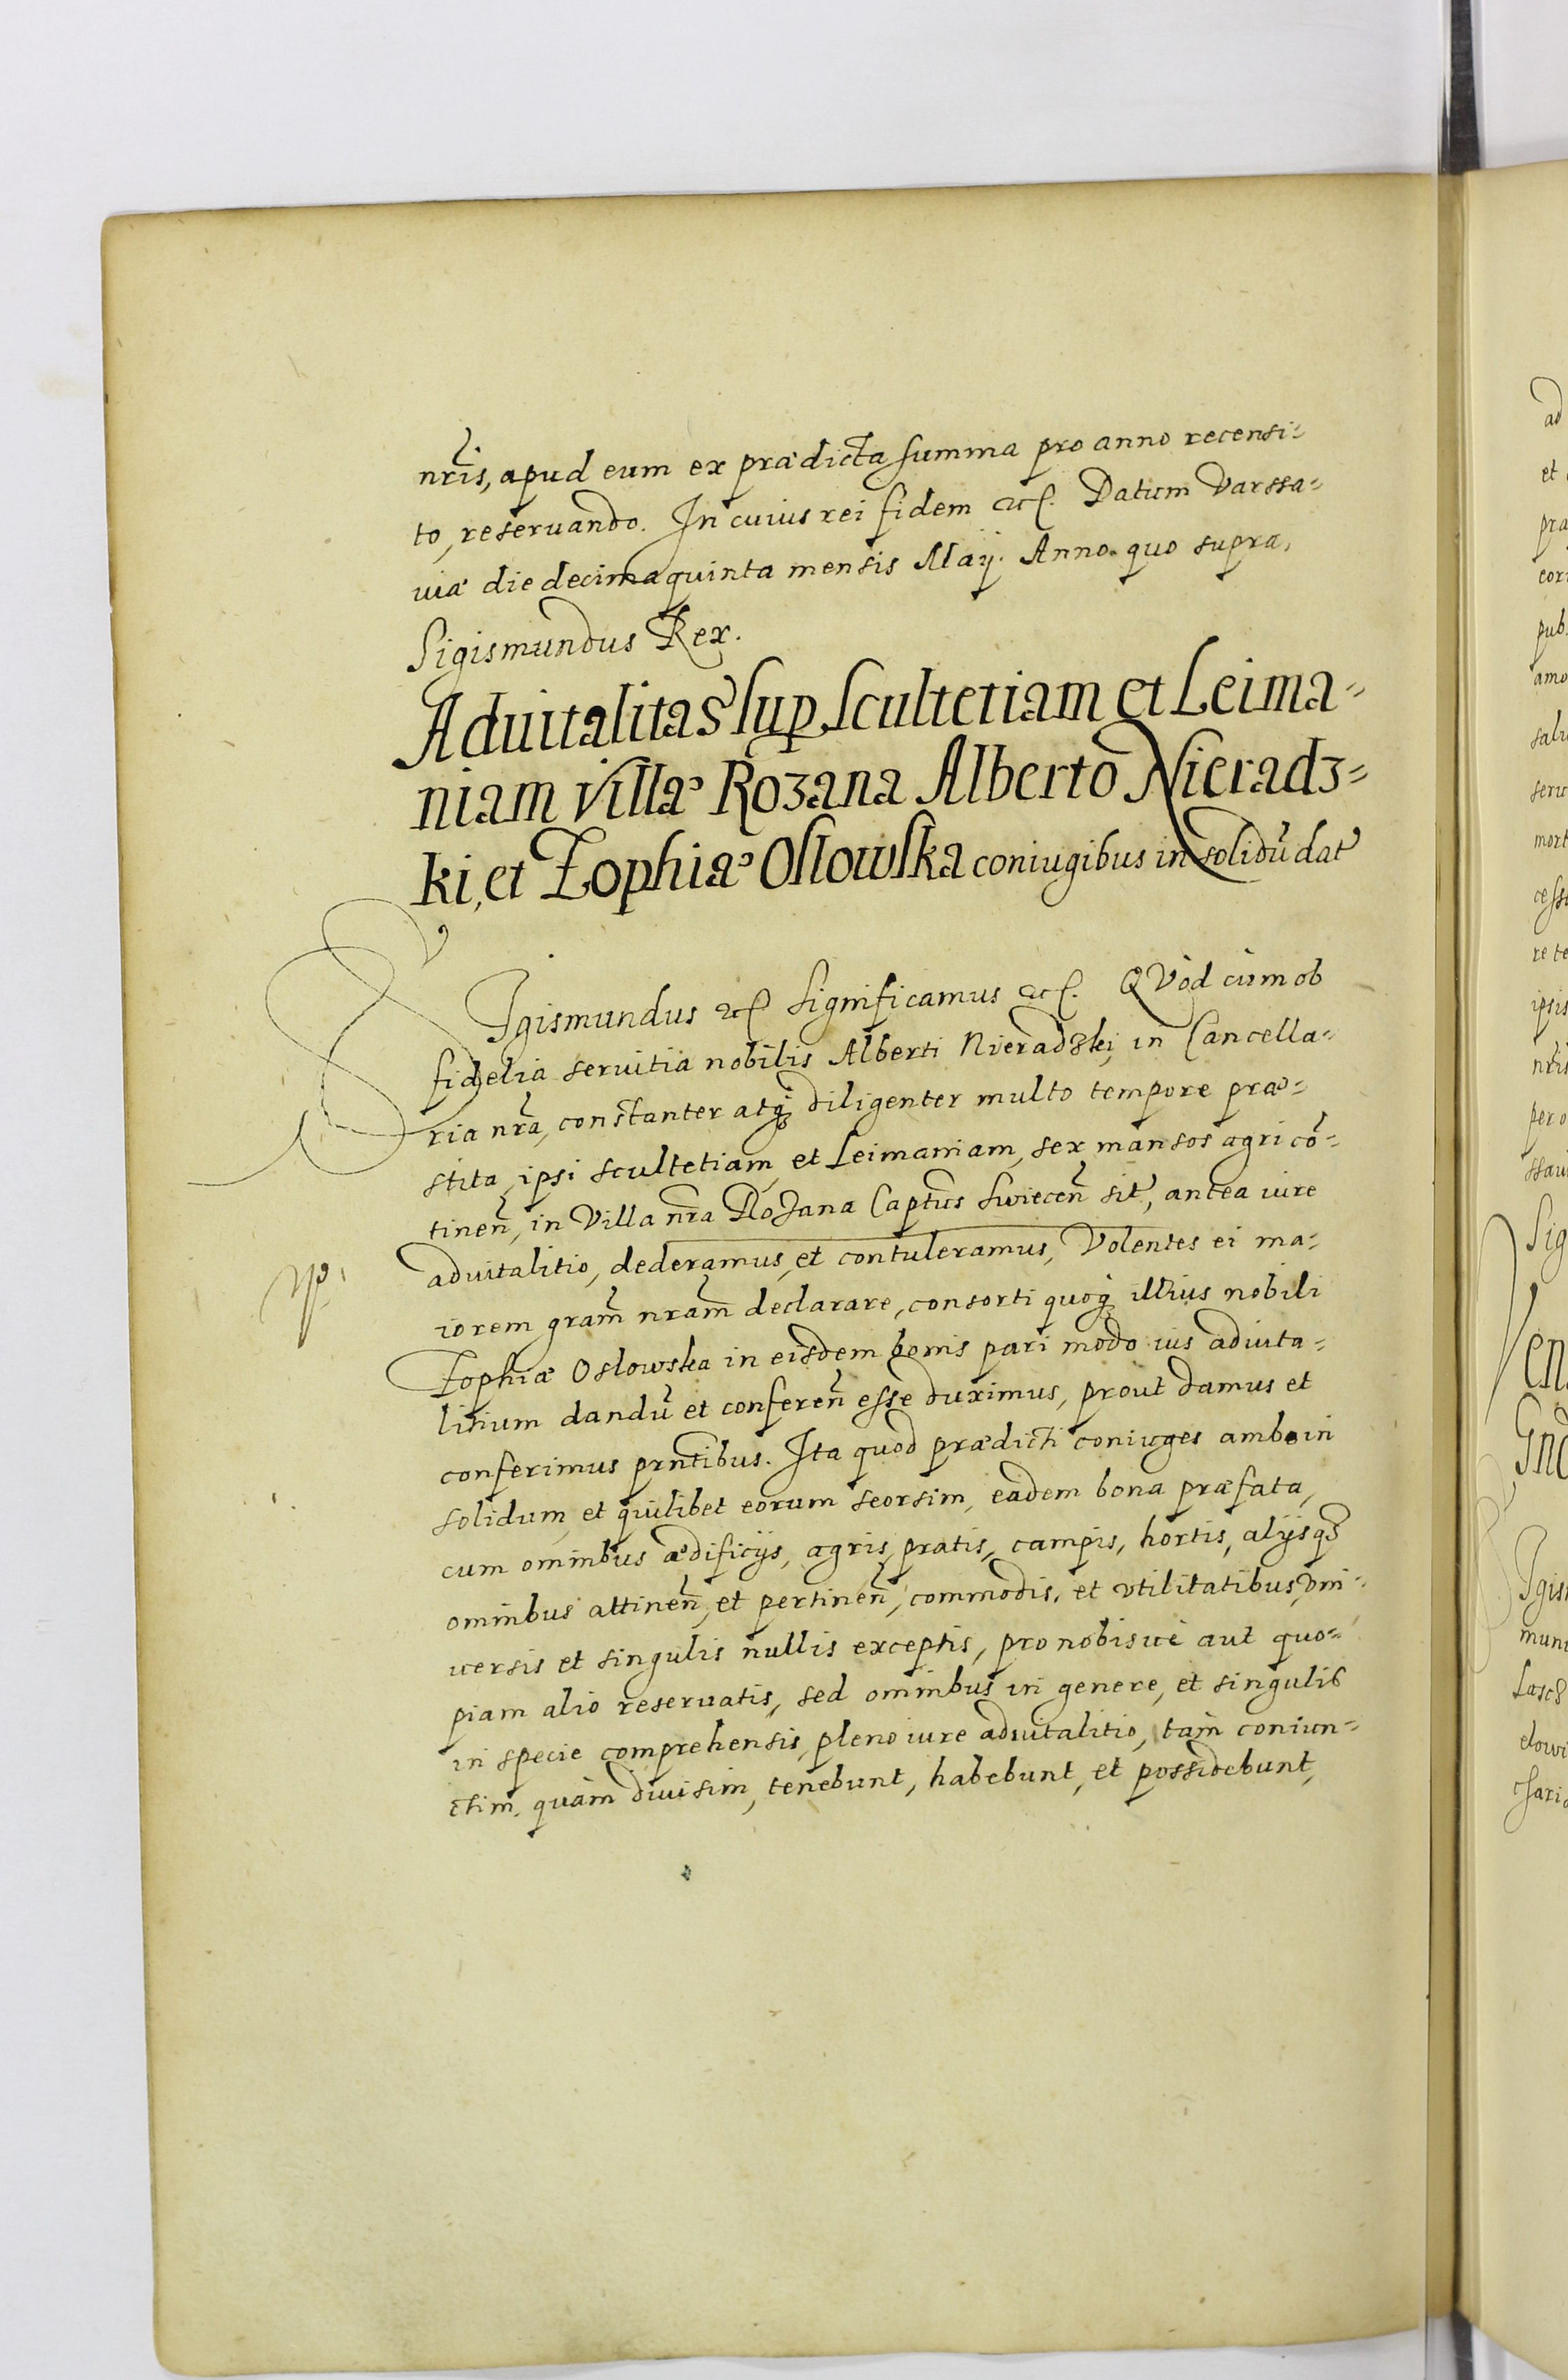 nr̃is, apud eum ex prædicta summa pro anno recensi=
to, reseruando. In cuius rei fidem etc. Datum Varssa=
uiæ die decima quinta mensis Maij. Anno quo supra,
Sigismundus Rex.
Aduitalitas sup Scultetiam et Leima=
niam villæ Rozana Alberto Nieradz=
ki, et Zophiæ Oslowska coniugibus in solidũ dat̃
Sigismundus etc Significamus etc. QVod cùm ob
fidelia seruitia nobilis Alberti Nieradzki, in Cancella=
ria nr̃a, constanter atq3 diligenter multo tempore præ=
stita, ipsi scultetiam, et Leimaniam, sex mansos agri cõ=
tineñ, in Villa nr̃a Rozana Captũs Swieceñ sit̃, antea iure
aduitalitio, dederamus, et contuleramus, Volentes ei ma=
iorem gram̃ nram̃ declarare, consorti quoq3 illius nobili
Zophiæ Oslowska in eisdem bonis pari modo ius aduita=
litium dandũ et confereñ esse duximus, prout damus et
conferimus prñtibus. Ita quod prædicti coniuges ambo in
solidum, et quilibet eorum seorsim, eadem bona præfata,
cum omnibus ædificijs, agris, pratis, campis, hortis, alijsq3
omnibus attineñ, et pertineñ, commodis, et vtilitatibus, vni=
uersis et singulis nullis exceptis, pro nobis uè aut quo=
piam alio reseruatis, sed omnibus in genere, et singulis
in specie comprehensis, pleno iure aduitalitio, tam coniun=
ctim, quàm diuisim, tenebunt, habebunt, et possidebunt,
ad
et
pra
pub
amo
seru
mort
cess
re te
ipsis
nr̃is
per o
ssau
Sig
Ven
Gnc
Igis
mun